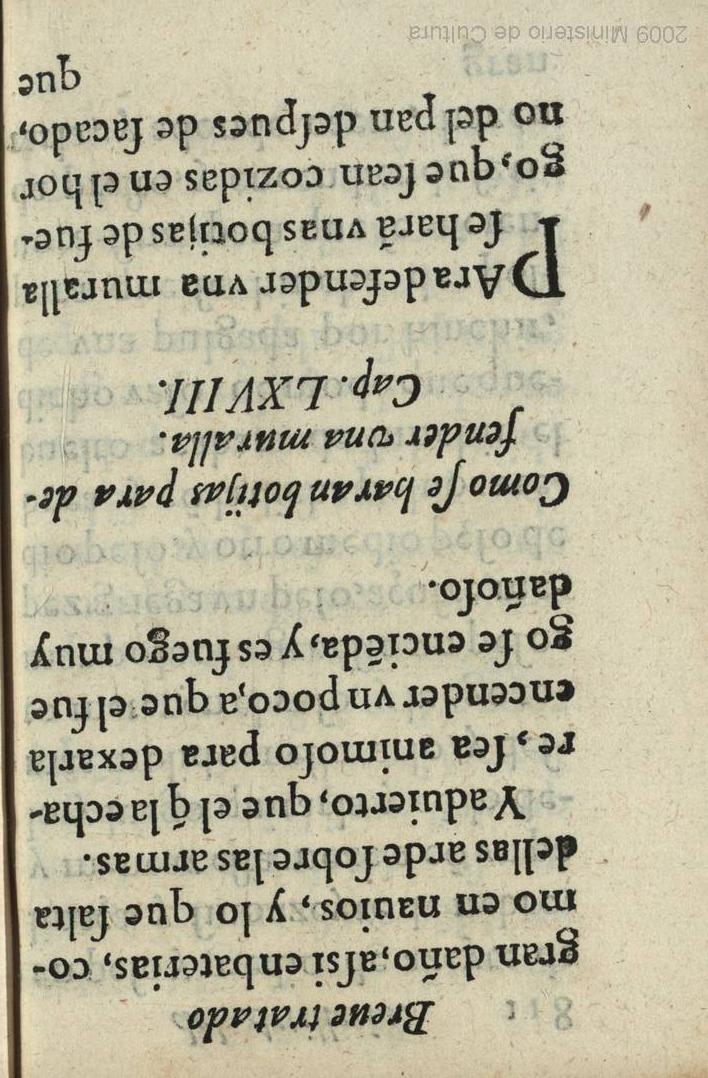 Breue tratado
gran daño, assi en baterias, co-
mo en nauios, y lo que salta
dellas arde sobre las armas.
Y aduierto, que el q̃ la echa-
re, sea animoso para dexarla
encender vn poco, a que el fue
go se enciẽda, y es fuego muy
dañoso.
Como se haran botijas para de-
fender vna muralla.
Cap. LXVIII.
PAra defender vna muralla
se harã vnas botijas de fue-
go, que sean cozidas en el hor
no del pan despues de sacado,
que
2009 Ministerio de Cultura